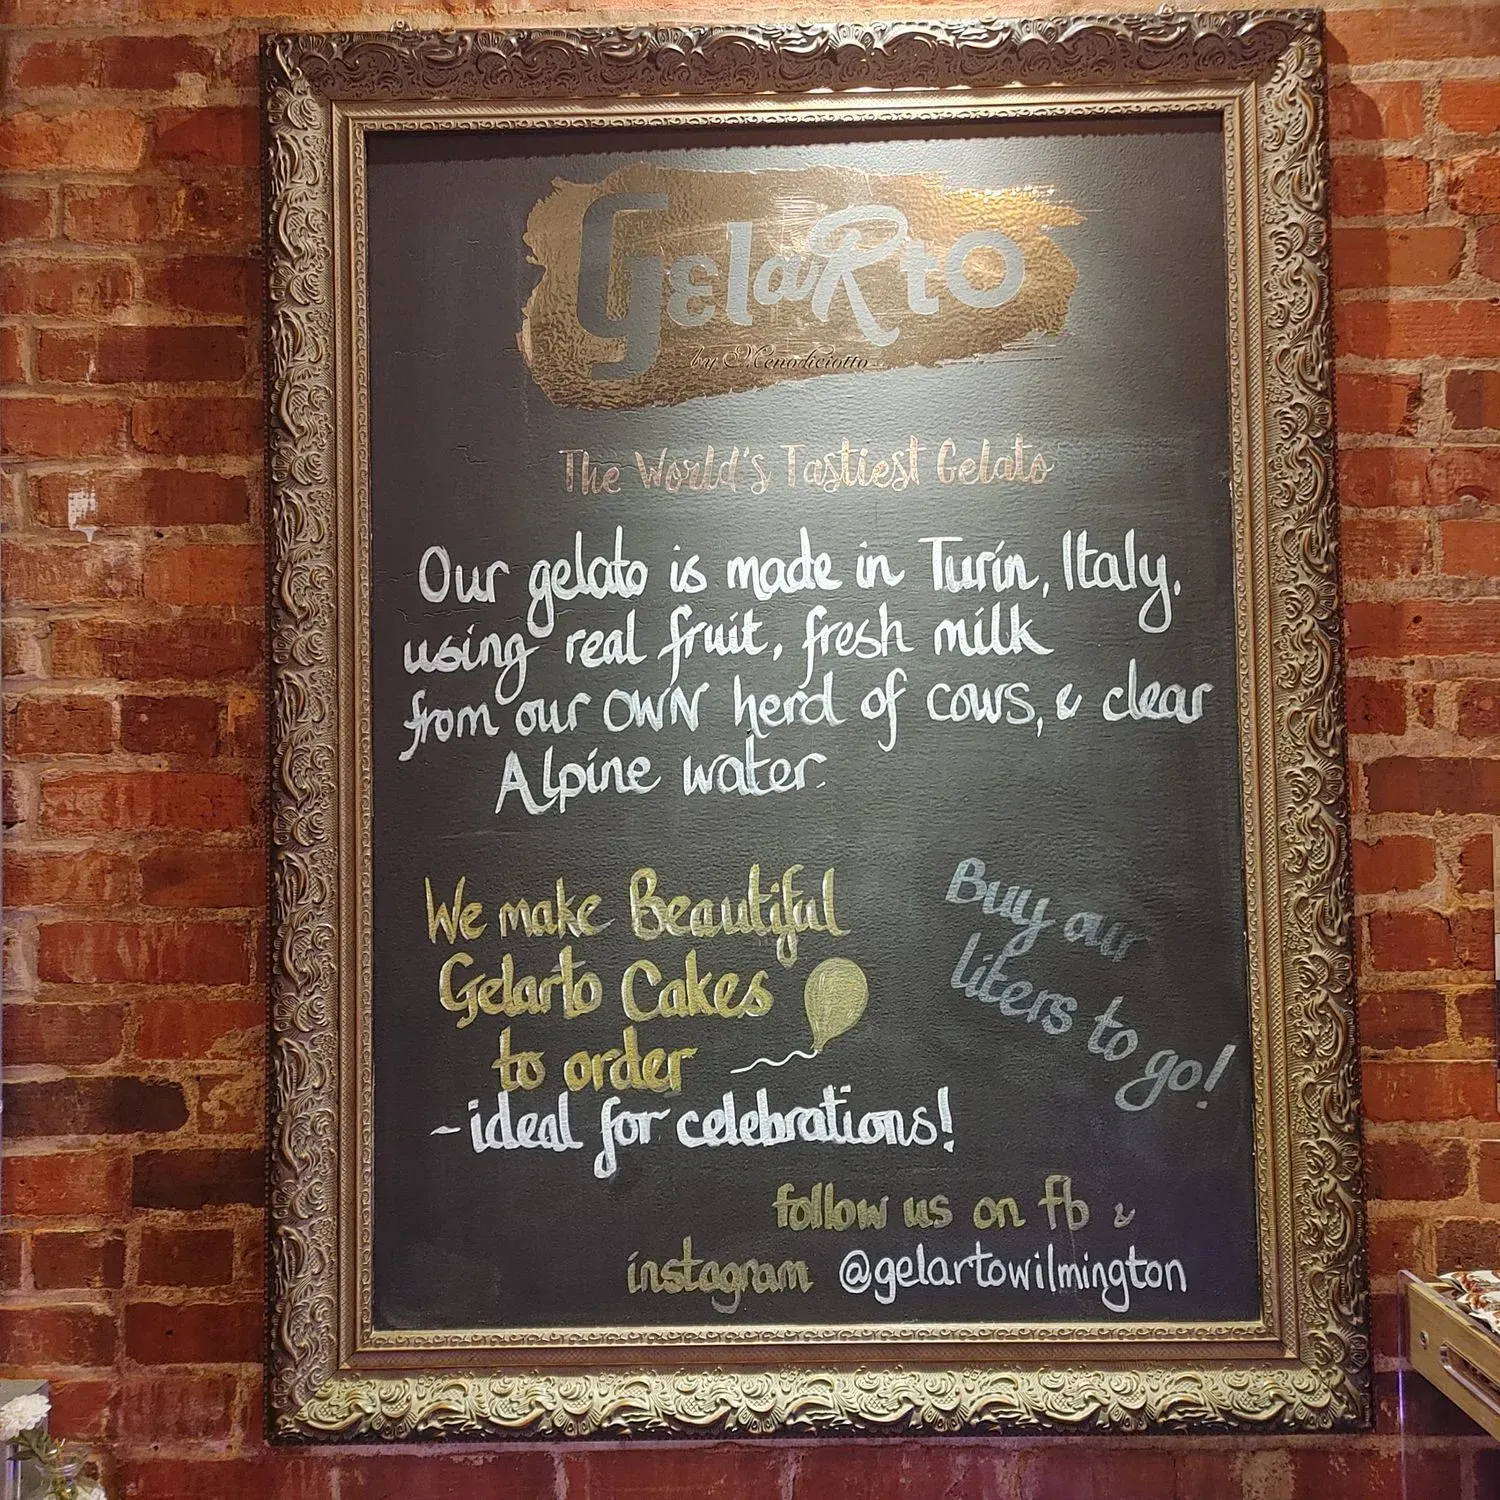 GelaRto
by Menodiciotto
The World's Tastiest Gelato
Our gelato is made in Turin, Italy,
using real fruit, fresh milk
from our OWN herd of cows, & clear
Alpine water.
We make Beautiful
Gelarto Cakes
to order
- ideal for celebrations!
Buy our
liters to go!
follow us on fb &
instagram @gelartowilmington